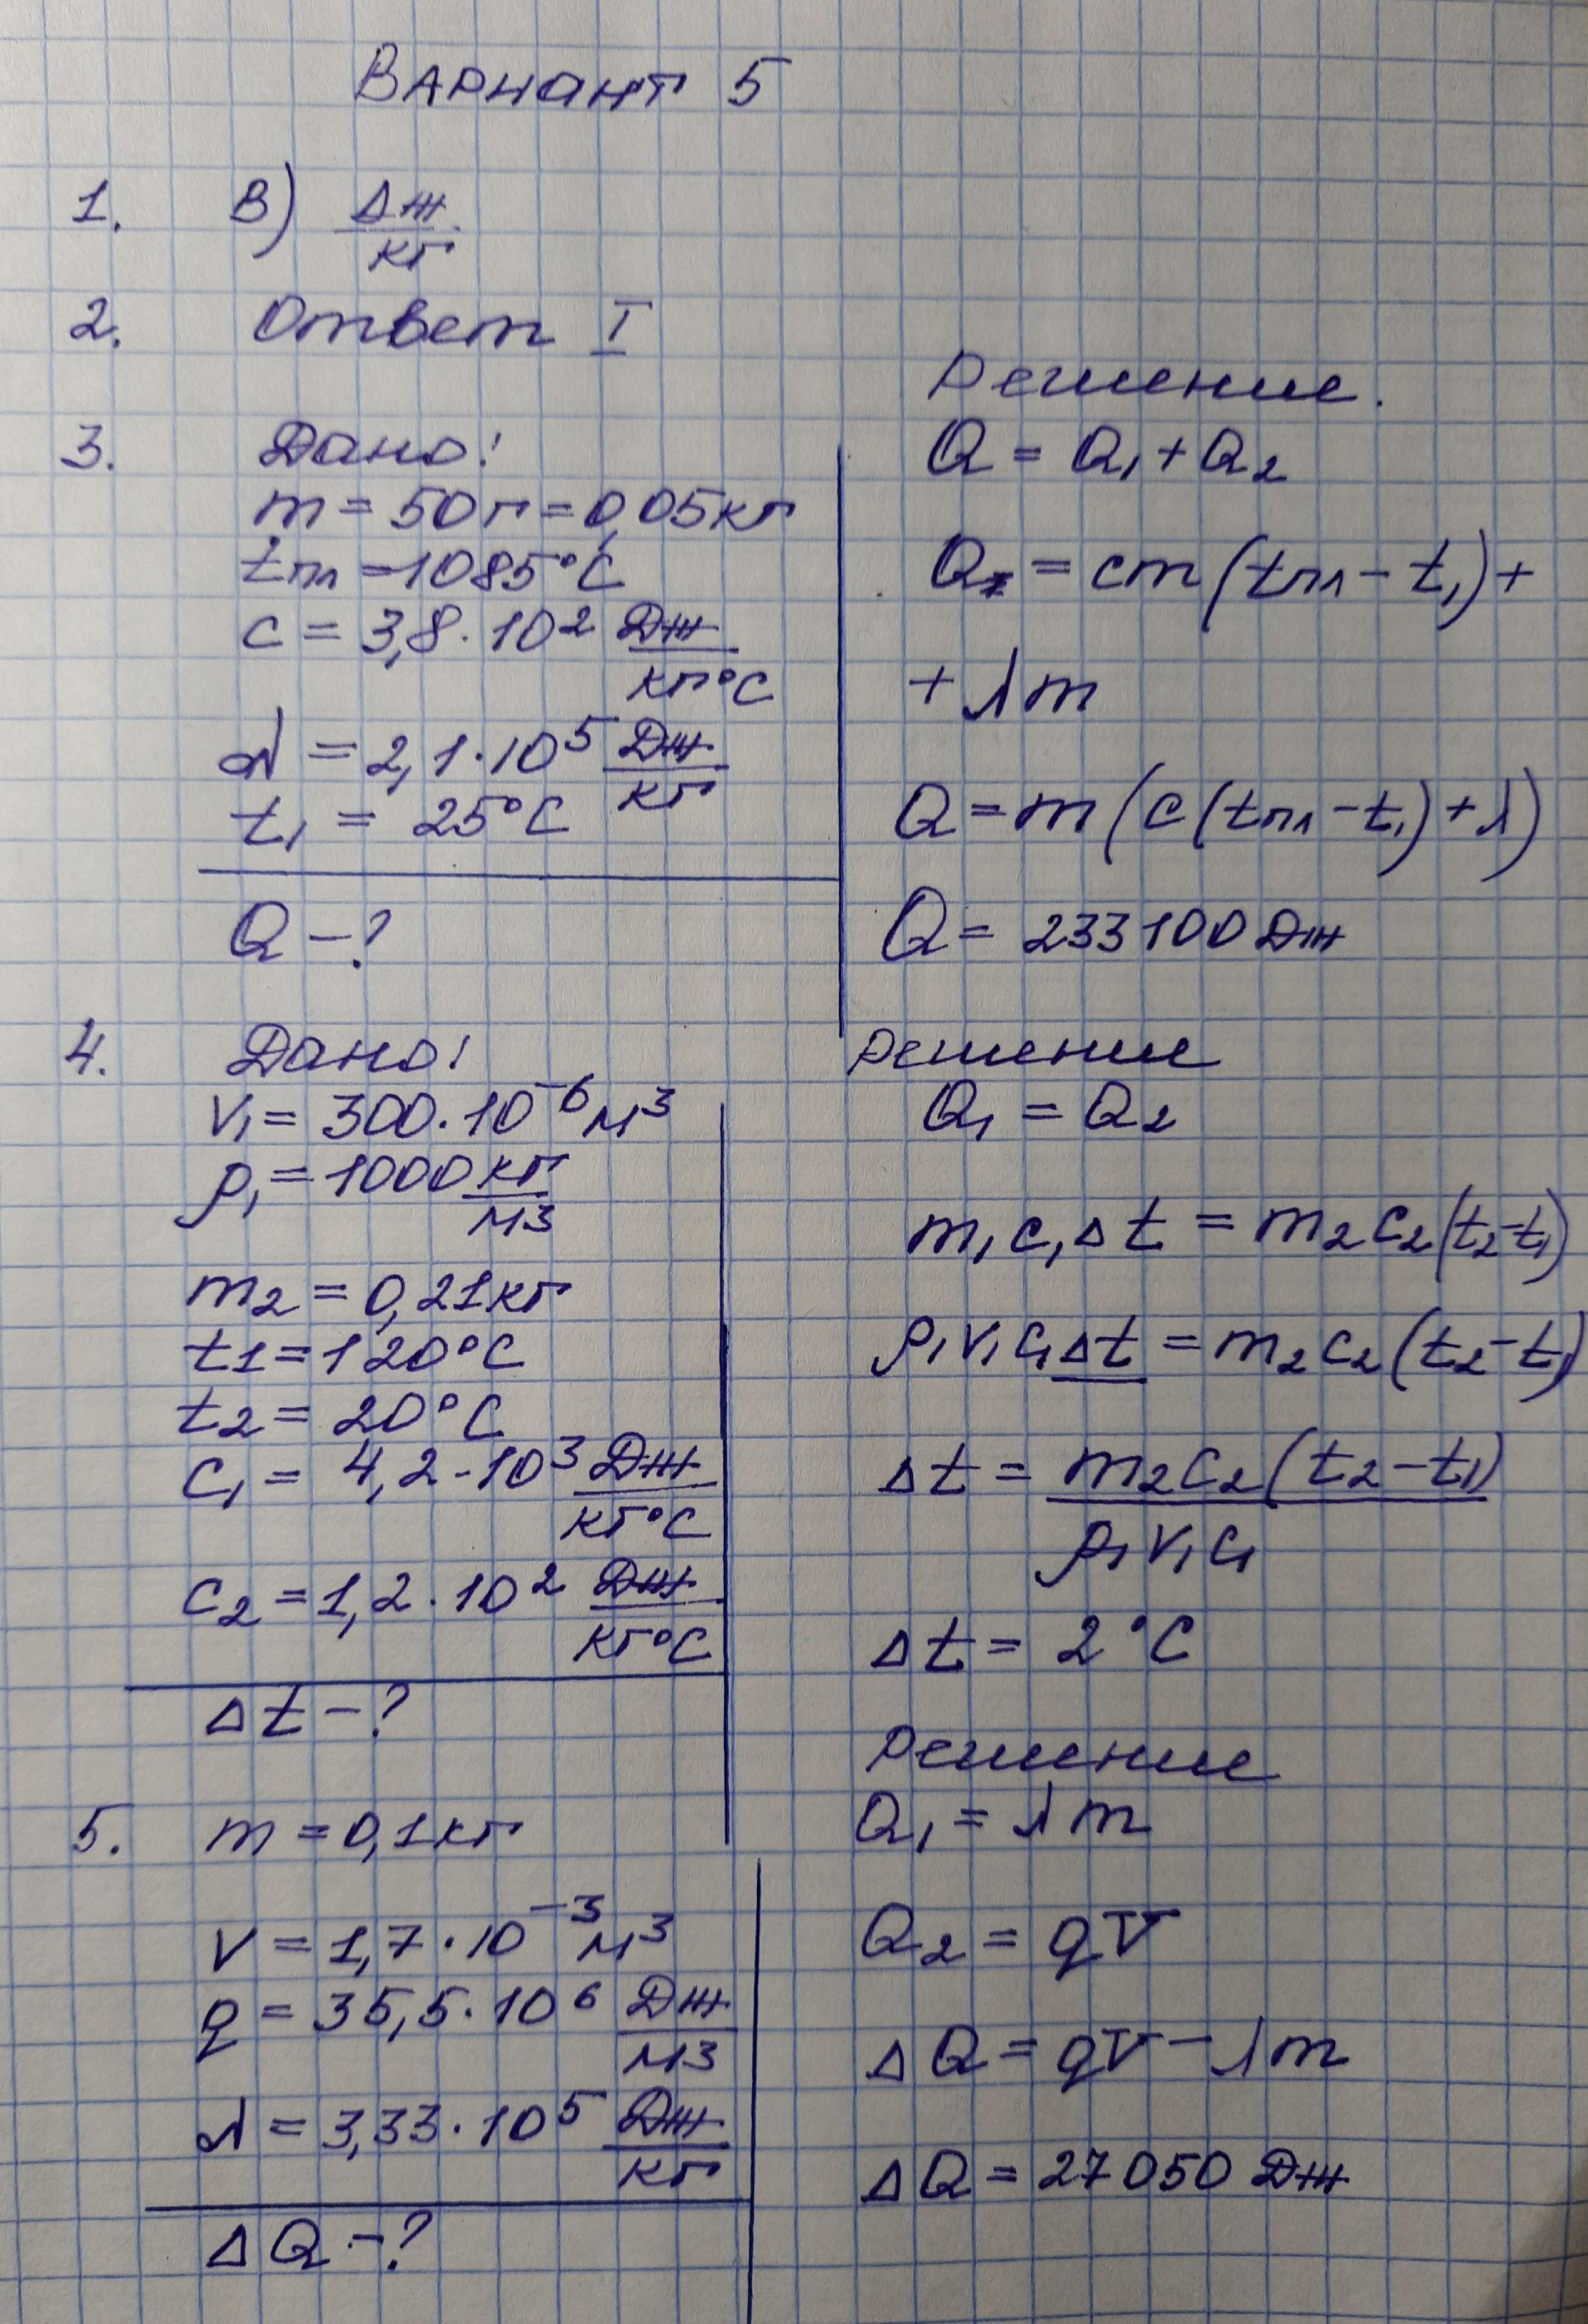 Вариант 5
1. В) Дж/кг
2. Ответ I
3. Дано!
m = 50г = 0,05кг
tпл = 1085°C
c = 3,8·10² Дж/кг°C
λ = 2,1·10⁵ Дж/кг
t₁ = 25°C
Q – ?
Решение.
Q = Q₁ + Q₂
Q = cm(tпл – t₁) +
+ λm
Q = m(c(tпл – t₁) + λ)
Q = 233100 Дж
4. Дано!
V₁ = 300·10⁻⁶ м³
ρ₁ = 1000 кг/м³
m₂ = 0,21кг
t1 = 120°C
t₂ = 20°C
C₁ = 4,2·10³ Дж/кг°C
C₂ = 1,2·10² Дж/кг°C
Δt – ?
Решение
Q₁ = Q₂
m₁c₁Δt = m₂c₂(t₂–t₁)
ρ₁V₁c₁Δt = m₂c₂(t₂–t₁)
Δt = m₂c₂(t₂–t₁)/ρ₁V₁c₁
Δt = 2°C
5. m = 0,1кг
V = 1,7·10⁻³ м³
q = 35,5·10⁶ Дж/м³
λ = 3,33·10⁵ Дж/кг
ΔQ – ?
Решение
Q₁ = λm
Q₂ = qV
ΔQ = qV – λm
ΔQ = 27050 Дж